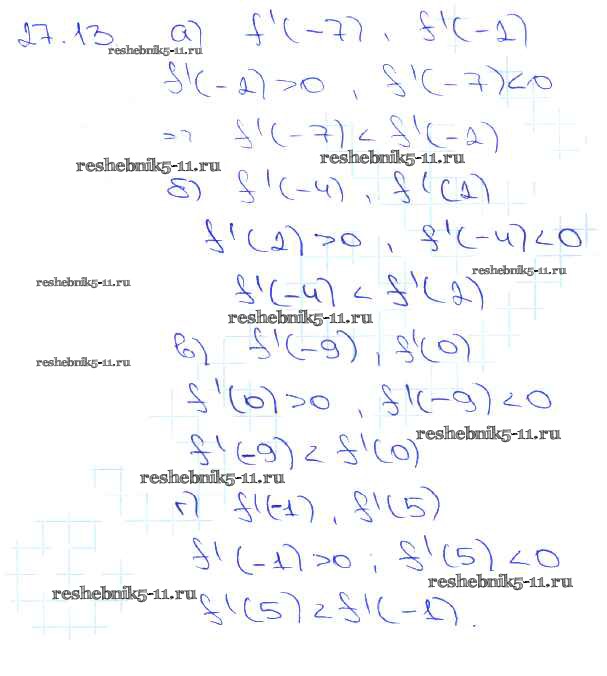 27.13 а) f'(-7), f'(-2)
reshebnik5-11.ru
f'(-2)>0, f'(-7)<0
=> f'(-7) < f'(-2)
reshebnik5-11.ru reshebnik5-11.ru
б) f'(-4), f'(2)
f'(2)>0, f'(-4)<0
reshebnik5-11.ru reshebnik5-11.ru
f'(-4) < f'(2)
reshebnik5-11.ru
в) f'(-9), f'(0)
reshebnik5-11.ru
f'(0)>0, f'(-9)<0
reshebnik5-11.ru
f'(-9) < f'(0)
reshebnik5-11.ru
г) f'(-1), f'(5)
f'(-1)>0; f'(5)<0
reshebnik5-11.ru reshebnik5-11.ru
f'(5) < f'(-1).